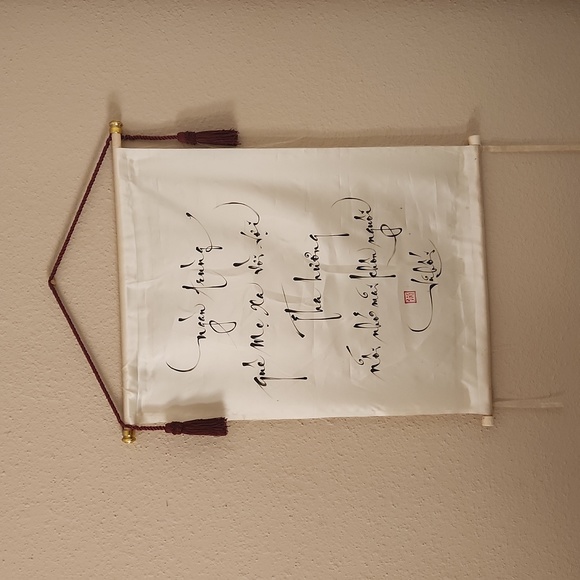 ngàn trùng
quê Mẹ xa vời vợi
Tha hương
nỗi nhớ mãi khôn nguôi